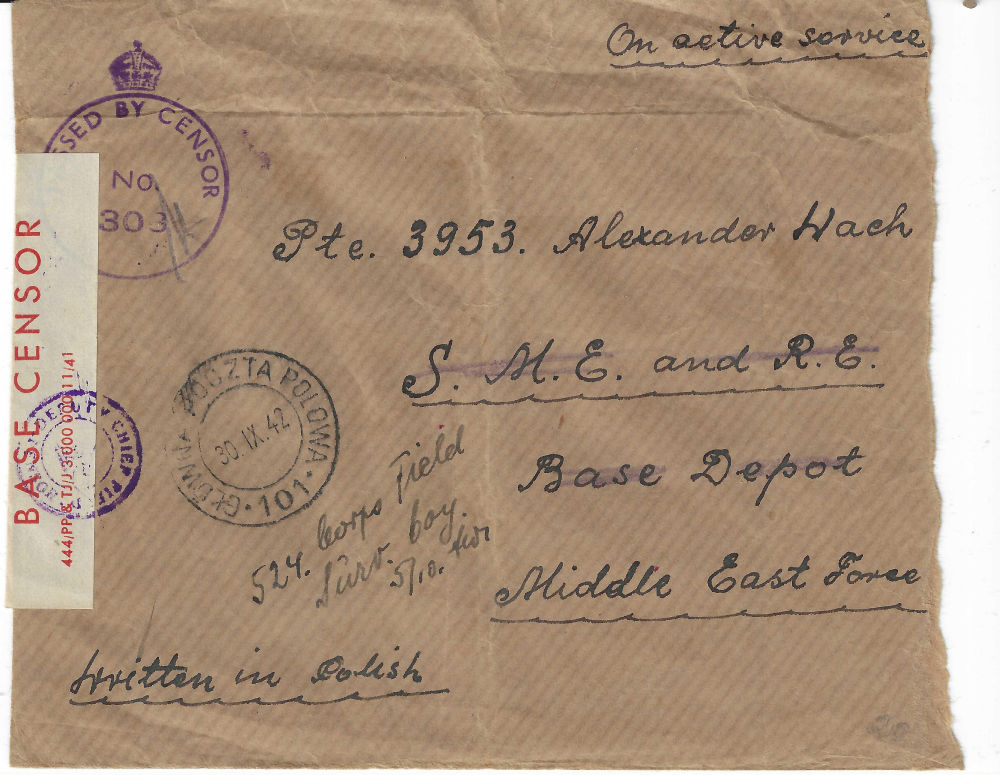 On active service
SSED BY CENSOR
No.
303
BASE CENSOR
444/PP & TJ/J 3,000 000 11/41
DEPUTY CHIEF
Pte. 3953. Alexander Wach
S. M. E. and R. E.
Base Depot
Middle East Force
GŁÓWNA POCZTA POLOWA
30. IX. 42
101
524. Corps Field
Surv. Coy.
5/10.
Written in Polish